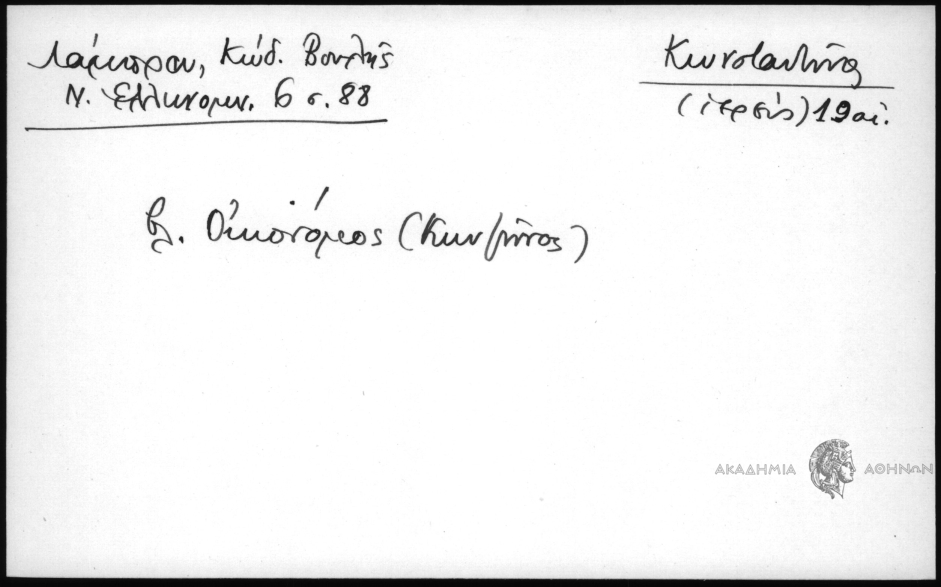 Λάμπρου, Κώδ. Βουλῆς
Ν. Ἑλληνομν. 6 σ. 88
Κωνσταντῖνος
(ἱερεύς) 19 αἰ.
βλ. Οἰκονόμος (Κων/τῖνος)
ΑΚΑΔΗΜΙΑ ΑΘΗΝΩΝ